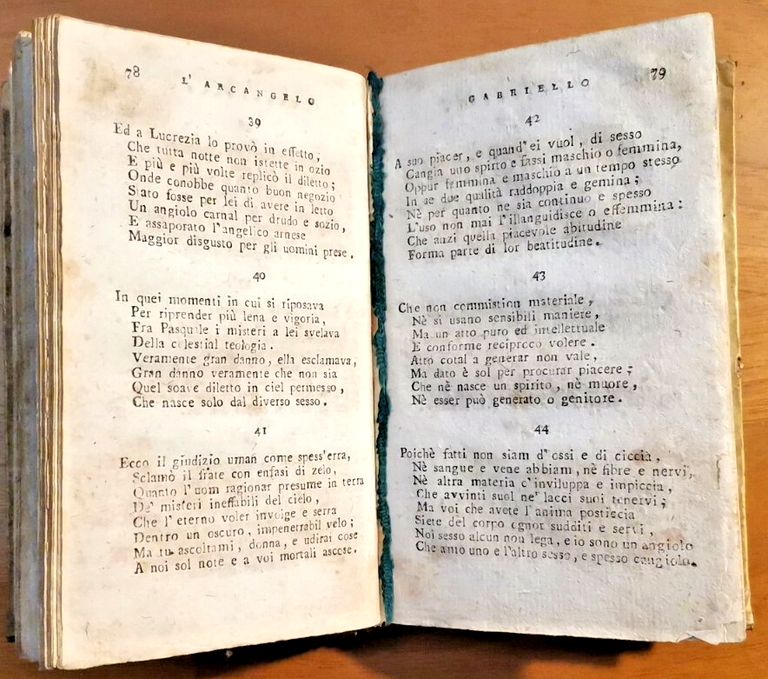 78
L' ARCANGELO
39
Ed a Lucrezia lo provò in effetto;
Che tutta notte non istette in ozio
E più e più volte replicò il diletto;
Onde conobbe quanto buon negozio
Stato fosse per lei di avere in letto
Un angiolo carnal per drudo e sozio,
E assaporato l'angelico arnese
Maggior disgusto per gli uomini prese.
40
In quei momenti in cui si riposava
Per riprender più lena e vigoria,
Fra Pasquale i misteri a lei svelava
Della celestial teologia.
Veramente gran danno, ella esclamava,
Gran danno veramente che non sia
Quel soave diletto in ciel permesso,
Che nasce solo dal diverso sesso.
41
Ecco il giudizio uman come spess'erra,
Sclamò il frate con enfasi di zelo,
Quanto l'uom ragionar presume in terra
De' misteri ineffabili del cielo,
Che l'eterno voler involge e serra
Dentro un oscuro, impenetrabil velo;
Ma tu ascoltami, donna, e udirai cose
A noi sol note e a voi mortali ascose.
GABRIELLO
79
42
A suo piacer, e quand' ei vuol, di sesso
Cangia uno spirto e fassi maschio o femmina,
Oppur femmina e maschio a un tempo stesso
In se due qualità raddoppia e gemina;
Nè per quanto ne sia continuo e spesso
L'uso non mai l'illanguidisce o effemmina:
Che anzi quella piacevole abitudine
Forma parte di lor beatitudine.
43
Che non commistion materiale,
Nè si usano sensibili maniere,
Ma un atto puro ed intellettuale
E conforme reciproco volere.
Atto cotal a generar non vale,
Ma dato è sol per procurar piacere;
Chè nè nasce un spirito, nè muore,
Nè esser può generato o genitore.
44
Poichè fatti non siam d'ossi e di ciccia,
Nè sangue e vene abbiam, nè fibre e nervi,
Nè altra materia c'inviluppa e impiccia,
Che avvinti suol ne' lacci suoi tenervi;
Ma voi che avete l'anima posticcia
Siete del corpo ognor sudditi e servi,
Noi sesso alcun non lega, e io sono un angiolo
Che amo uno e l'altro sesso, e spesso cangiolo.